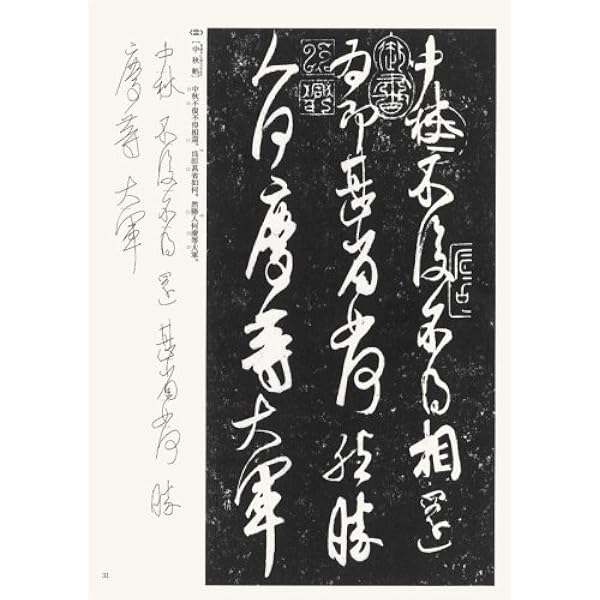 中秋不復不得相還
為即甚省如何然勝
人何慶等大軍
御書
[中秋帖] 中秋不復不得相還。為即甚省如何。然勝人何慶等大軍。
中秋 不復不得 還 甚省如何 勝
慶等 大軍
31